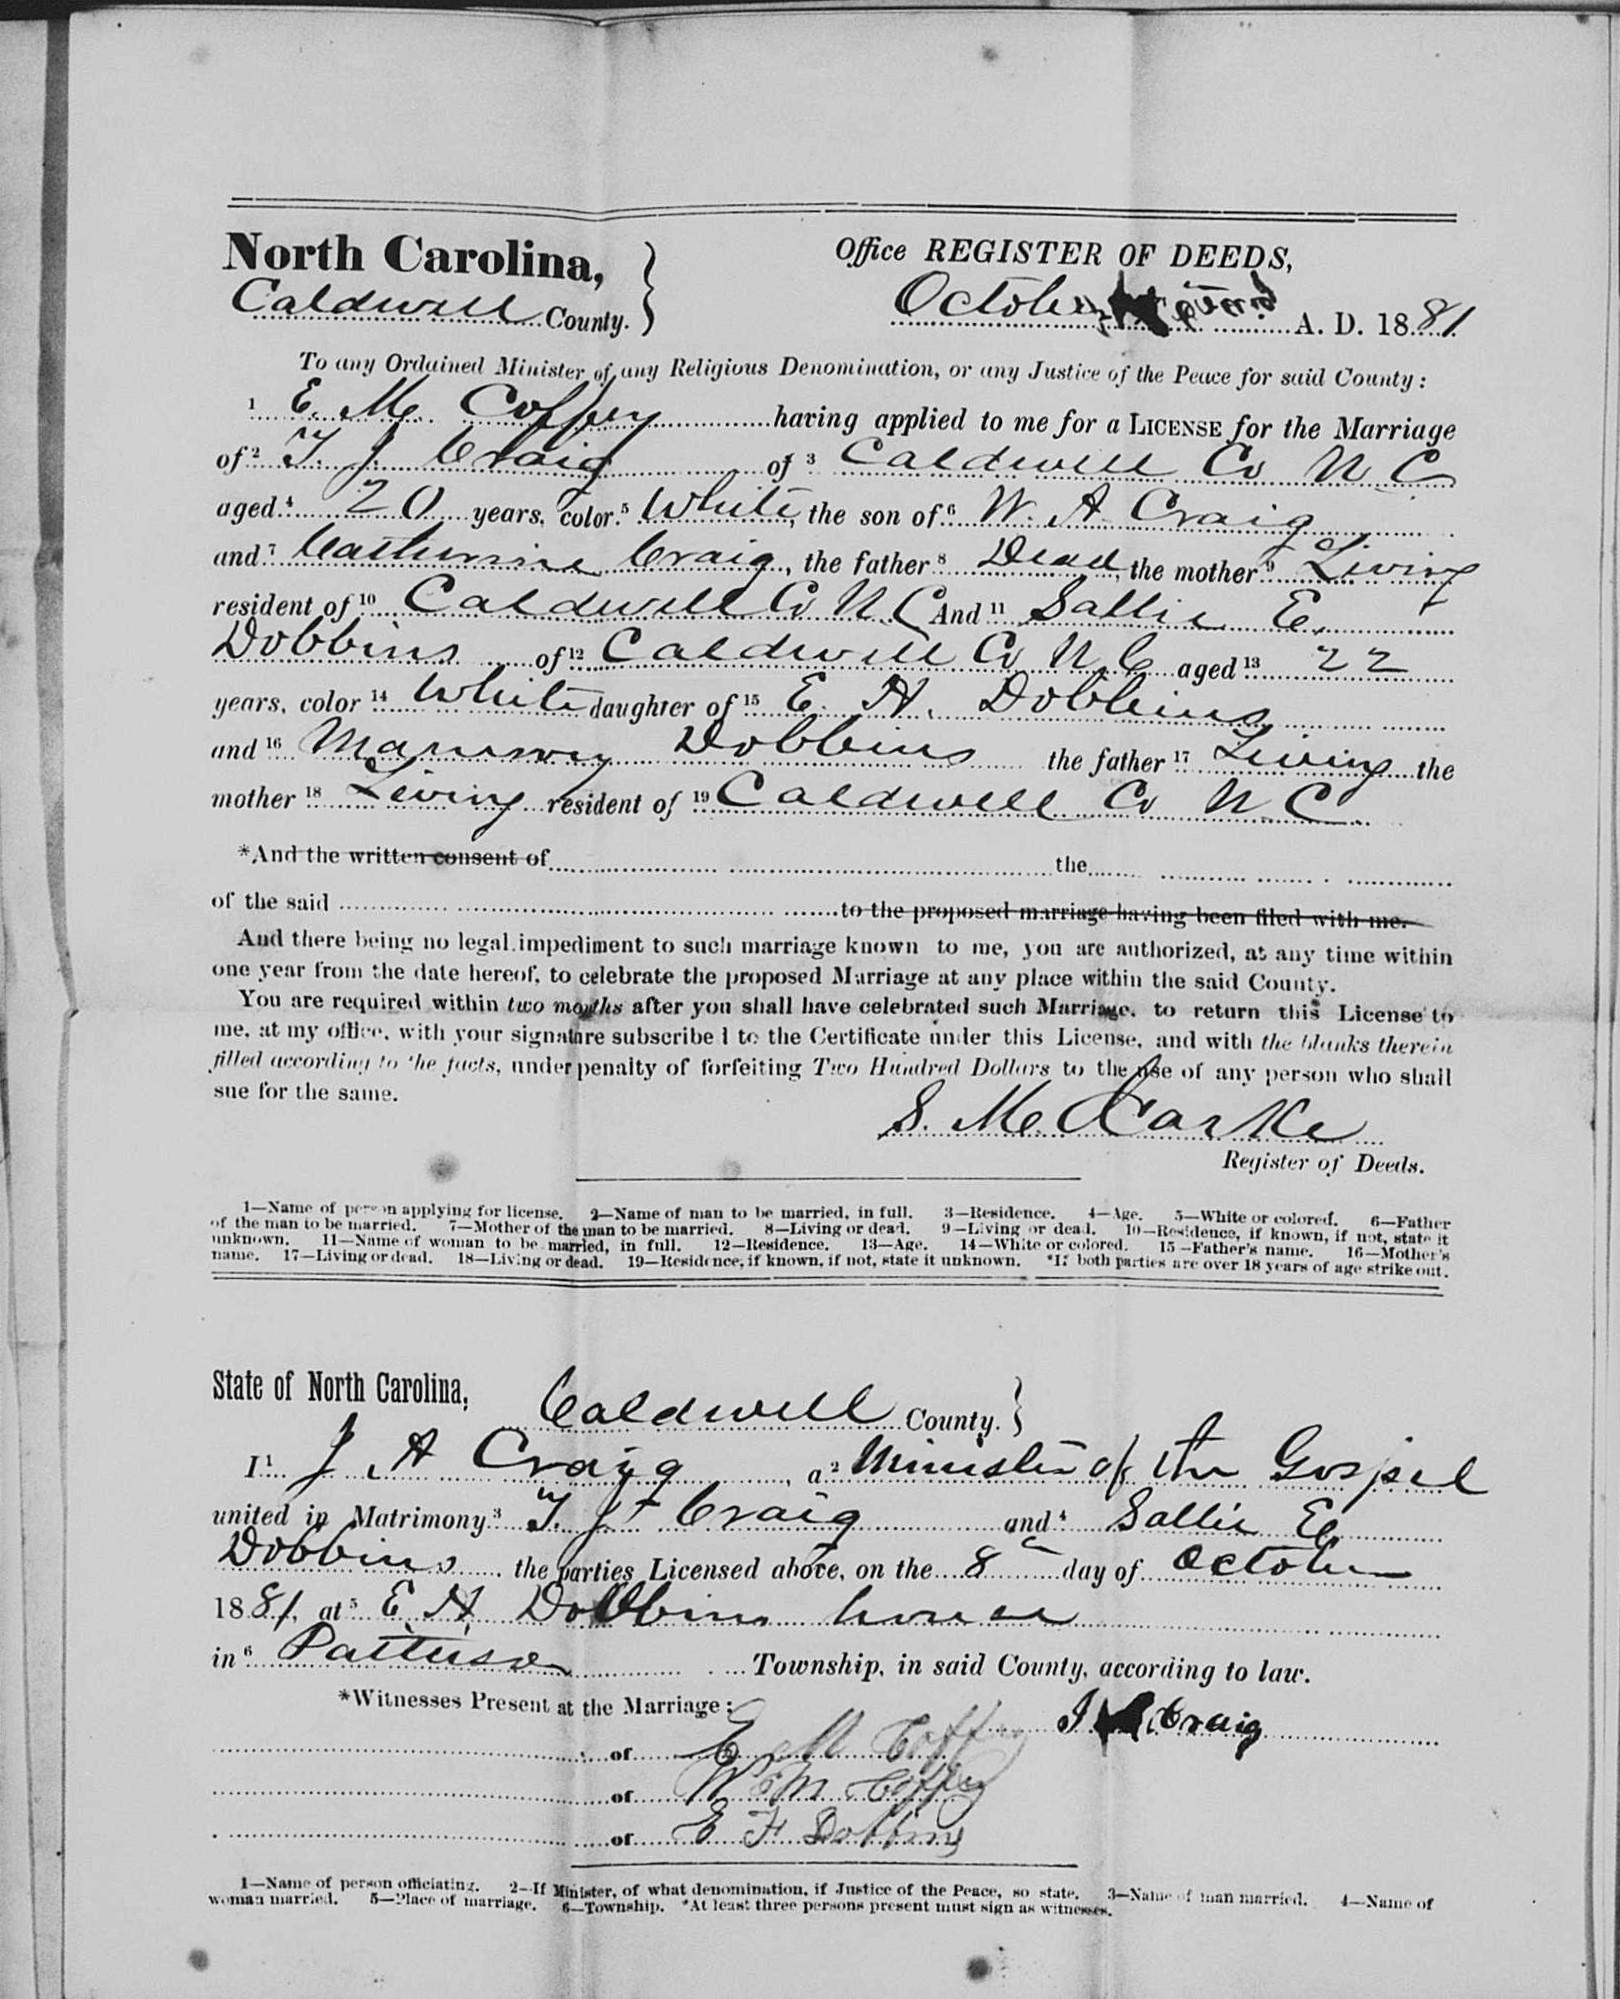 North Carolina,
Caldwell County.
Office REGISTER OF DEEDS,
October A. D. 1881
To any Ordained Minister of any Religious Denomination, or any Justice of the Peace for said County:
1 E. M. Coffey having applied to me for a LICENSE for the Marriage
of 2 T. J. Craig of 3 Caldwell Co N C
aged 4 20 years, color 5 White, the son of 6 W. A. Craig
and 7 Catherine Craig, the father 8 Dead, the mother 9 Living
resident of 10 Caldwell Co N. C And 11 Sallie E.
Dobbins of 12 Caldwell Co N. C aged 13 22
years, color 14 White daughter of 15 E. H. Dobbins
and 16 Dobbins the father 17 Living the
mother 18 Living resident of 19 Caldwell Co N C.
*And the written consent of the
of the said to the proposed marriage having been filed with me.
And there being no legal impediment to such marriage known to me, you are authorized, at any time within
one year from the date hereof, to celebrate the proposed Marriage at any place within the said County.
You are required within two months after you shall have celebrated such Marriage, to return this License to
me, at my office, with your signature subscribed to the Certificate under this License, and with the blanks therein
filled according to the facts, under penalty of forfeiting Two Hundred Dollars to the use of any person who shall
sue for the same.
S. M. Clarke
Register of Deeds.
1—Name of person applying for license. 2—Name of man to be married, in full. 3—Residence. 4—Age. 5—White or colored. 6—Father
of the man to be married. 7—Mother of the man to be married. 8—Living or dead. 9—Living or dead. 10—Residence, if known, if not, state it
unknown. 11—Name of woman to be married, in full. 12—Residence. 13—Age. 14—White or colored. 15—Father's name. 16—Mother's
name. 17—Living or dead. 18—Living or dead. 19—Residence, if known, if not, state it unknown. *If both parties are over 18 years of age strike out.
State of North Carolina, Caldwell County.
I 1 J A Craig, a 2 Minister of the Gospel
united in Matrimony 3 T. J Craig and 4 Sallie E
Dobbins the parties Licensed above, on the 8 day of October
1881, at 5 E. H. Dobbins house
in 6 Patterson Township, in said County, according to law.
*Witnesses Present at the Marriage:
Craig
of E M Coffey
of W M Coffey
of E F Dobbins
1—Name of person officiating. 2—If Minister, of what denomination, if Justice of the Peace, so state. 3—Name of man married. 4—Name of
woman married. 5—Place of marriage. 6—Township. *At least three persons present must sign as witnesses.